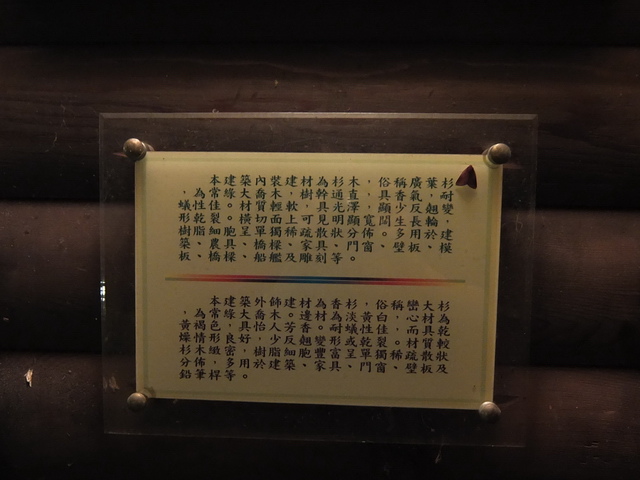 杉耐變,建模
葉,翹輪於、
廣氣反長用板
稱香少生多壁
俗具顯。、
,,寬佈富
木直澤顯分門。
杉通光明狀、等
為幹具見散具刻
材樹,可疏家雕
建,軟上稀、及
裝木輕面獨樑艦
內喬質切單橋船
築大材橫呈、
建緣。。胞具樑
本常佳裂細農橋
為性乾脂、
,蟻形樹築板
杉為乾較狀及
大材具質散板
巒心而材疏壁
稱,,。稀、
俗白佳裂獨富
,黃性乾單門
杉淡蟻或呈、
香為耐形富具
為材。變豐家
材邊香翹胞、
建。芳反細築
飾木人少脂建
外喬怡,樹於
築大具好,用。
建緣,良密多等
本常色形緻,桿
為褐情木佈筆
,黃燥杉分鉛